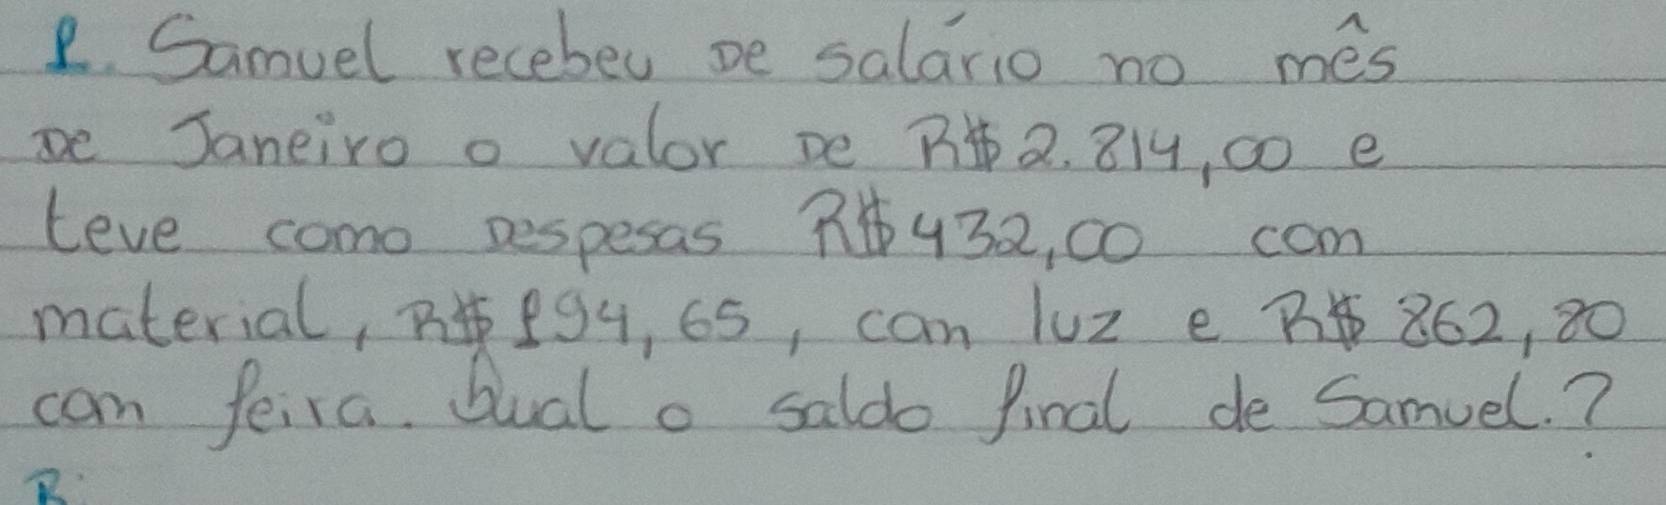 1. Samuel recebeu de salário no mês
de Janeiro o valor de R$ 2.814,00 e
teve como despesas R$ 432,00 com
material, R$ 194,65, com luz e R$ 862,80
com feira. Qual o saldo final de Samuel.?
R: